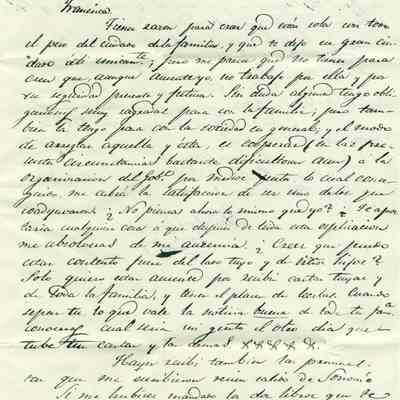 Francisca.
Tienes razon para creer que estás sola con todo
el peso del cuidado de la familia, y que te dejo en gran
á ti unicamte; pero me parece que no tienes para
creer que, aunque ausente yo, no trabajo por ella y por
su seguridad presente y futura. Sin duda alguna tengo obli
gaciones muy sagradas para con la familia, pero tam-
bien la tengo para con la sociedad en general, y el modo
de arreglar aquella y esta, es cooperando (en las pre-
sentes circunstancias bastante dificultosas aun) á la
organizacion del Gobo. por medios , lo cual con
me cabria la satisfaccion de ser uno de los que
coadyuvaron. ¿No piensas ahora lo mismo que yo?
cualquier cosa á que despues de toda esta esplicacion
me absolveras de mi ausencia. ¿Creer que puedo
estar contento fuera del lado tuyo y de hijos?
Solo quiero estar ausente por recibir cartas tuyas y
de toda la familia, y tener el placer de leerlas. Cuando
sepas tu lo que vale la noticia buena de toda tu fam
conoceras cual seria mi gusto el otro dia que
tube tu carta y las demas. XXXXX.
Hayer recibi tambien las
ras que me escribieron recien salido de Sonoma
Si me hubiese mandado los dos libros que te